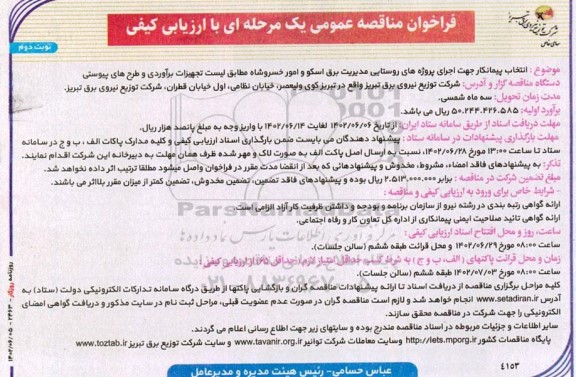 فراخوان مناقصه عمومی یک مرحله ای با ارزیابی کیفی
نوبت دوم
شرکت توزیع نیروی برق تبریز
سهامی خاص
موضوع : انتخاب پیمانکار جهت اجرای پروژه های روستایی مدیریت برق اسکو و امور خسروشاه مطابق لیست تجهیزات برآوردی و طرح های پیوستی
دستگاه مناقصه گزار و آدرس: شرکت توزیع نیروی برق تبریز واقع در تبریز کوی ولیعصر، خیابان نظامی، اول خیابان قطران، شرکت توزیع نیروی برق تبریز.
مدت زمان تحویل: سه ماه شمسی.
برآورد اولیه: ۵۰.۲۴۴.۴۲۶.۵۸۵ ریال می باشد.
مهلت دریافت اسناد از طریق سامانه ستاد ایران: از تاریخ ۱۴۰۲/۰۶/۰۶ لغایت ۱۴۰۲/۰۶/۱۴ با واریز وجه به مبلغ پانصد هزار ریال.
مهلت بارگذاری پیشنهادات در سامانه ستاد : پیشنهاد دهندگان می بایست ضمن بارگذاری اسناد ارزیابی کیفی و کلیه مدارک پاکات الف ، ب و ج در سامانه
ستاد تا ساعت ۱۳:۰۰ مورخ ۱۴۰۲/۰۶/۲۸، نسبت به ارسال اصل پاکت الف به صورت لاک و مهر شده ظرف همان مهلت به دبیرخانه این شرکت اقدام نمایند.
تذکر: به پیشنهادهای فاقد امضاء، مشروط، مخدوش و پیشنهادهائی که بعد از انقضا مدت مقرر در فراخوان واصل میشود مطلقا ترتیب اثر داده نخواهد شد.
مبلغ تضمین شرکت در مناقصه : برابر ۲.۵۱۳.۰۰۰.۰۰۰ ریال بوده و پیشنهادهای فاقد تضمین، تضمین مخدوش، تضمین کمتر از میزان مقرر بلااثر می باشند.
- شرایط خاص برای ورود به ارزیابی کیفی و مناقصه :
ارائه گواهی رتبه بندی در رشته نیرو از سازمان برنامه و بودجه و داشتن ظرفیت کار آزاد الزامی است.
ارائه گواهی تائید صلاحیت ایمنی پیمانکاری از اداره کل تعاون کار و رفاه اجتماعی.
ساعت، روز و محل افتتاح اسناد ارزیابی کیفی:
ساعت ۰۸:۰۰ مورخ ۱۴۰۲/۰۶/۲۹ و محل قرائت طبقه ششم (سالن جلسات).
زمان و محل قرائت پاکتهای (الف، ب و ج) : به شرط کسب حداقل امتیاز لازم (حداقل ۶۵) از ارزیابی کیفی:
ساعت ۰۸:۰۰ مورخ ۱۴۰۲/۰۷/۰۳ طبقه ششم (سالن جلسات).
کلیه مراحل برگزاری مناقصه از دریافت اسناد تا ارائه پیشنهادات مناقصه گران و بازگشایی پاکتها از طریق درگاه سامانه تدارکات الکترونیکی دولت (ستاد) به
آدرس www.setadiran.ir انجام خواهد شد و لازم است مناقصه گران در صورت عدم عضویت قبلی، مراحل ثبت نام در سایت مذکور و دریافت گواهی امضای
الکترونیکی را جهت شرکت در مناقصه محقق سازند.
سایر اطلاعات و جزئیات مربوطه در اسناد مناقصه مندرج بوده و سایتهای زیر جهت اطلاع رسانی اعلام می گردند.
پایگاه مناقصات کشور http://iets.mporg.ir وسایت معاملات شرکت توانیر www.tavanir.org.ir و سایت شرکت توزیع برق تبریز www.toztab.ir
۴۱۵۳
عباس حسامی- رئیس هیئت مدیره و مدیرعامل